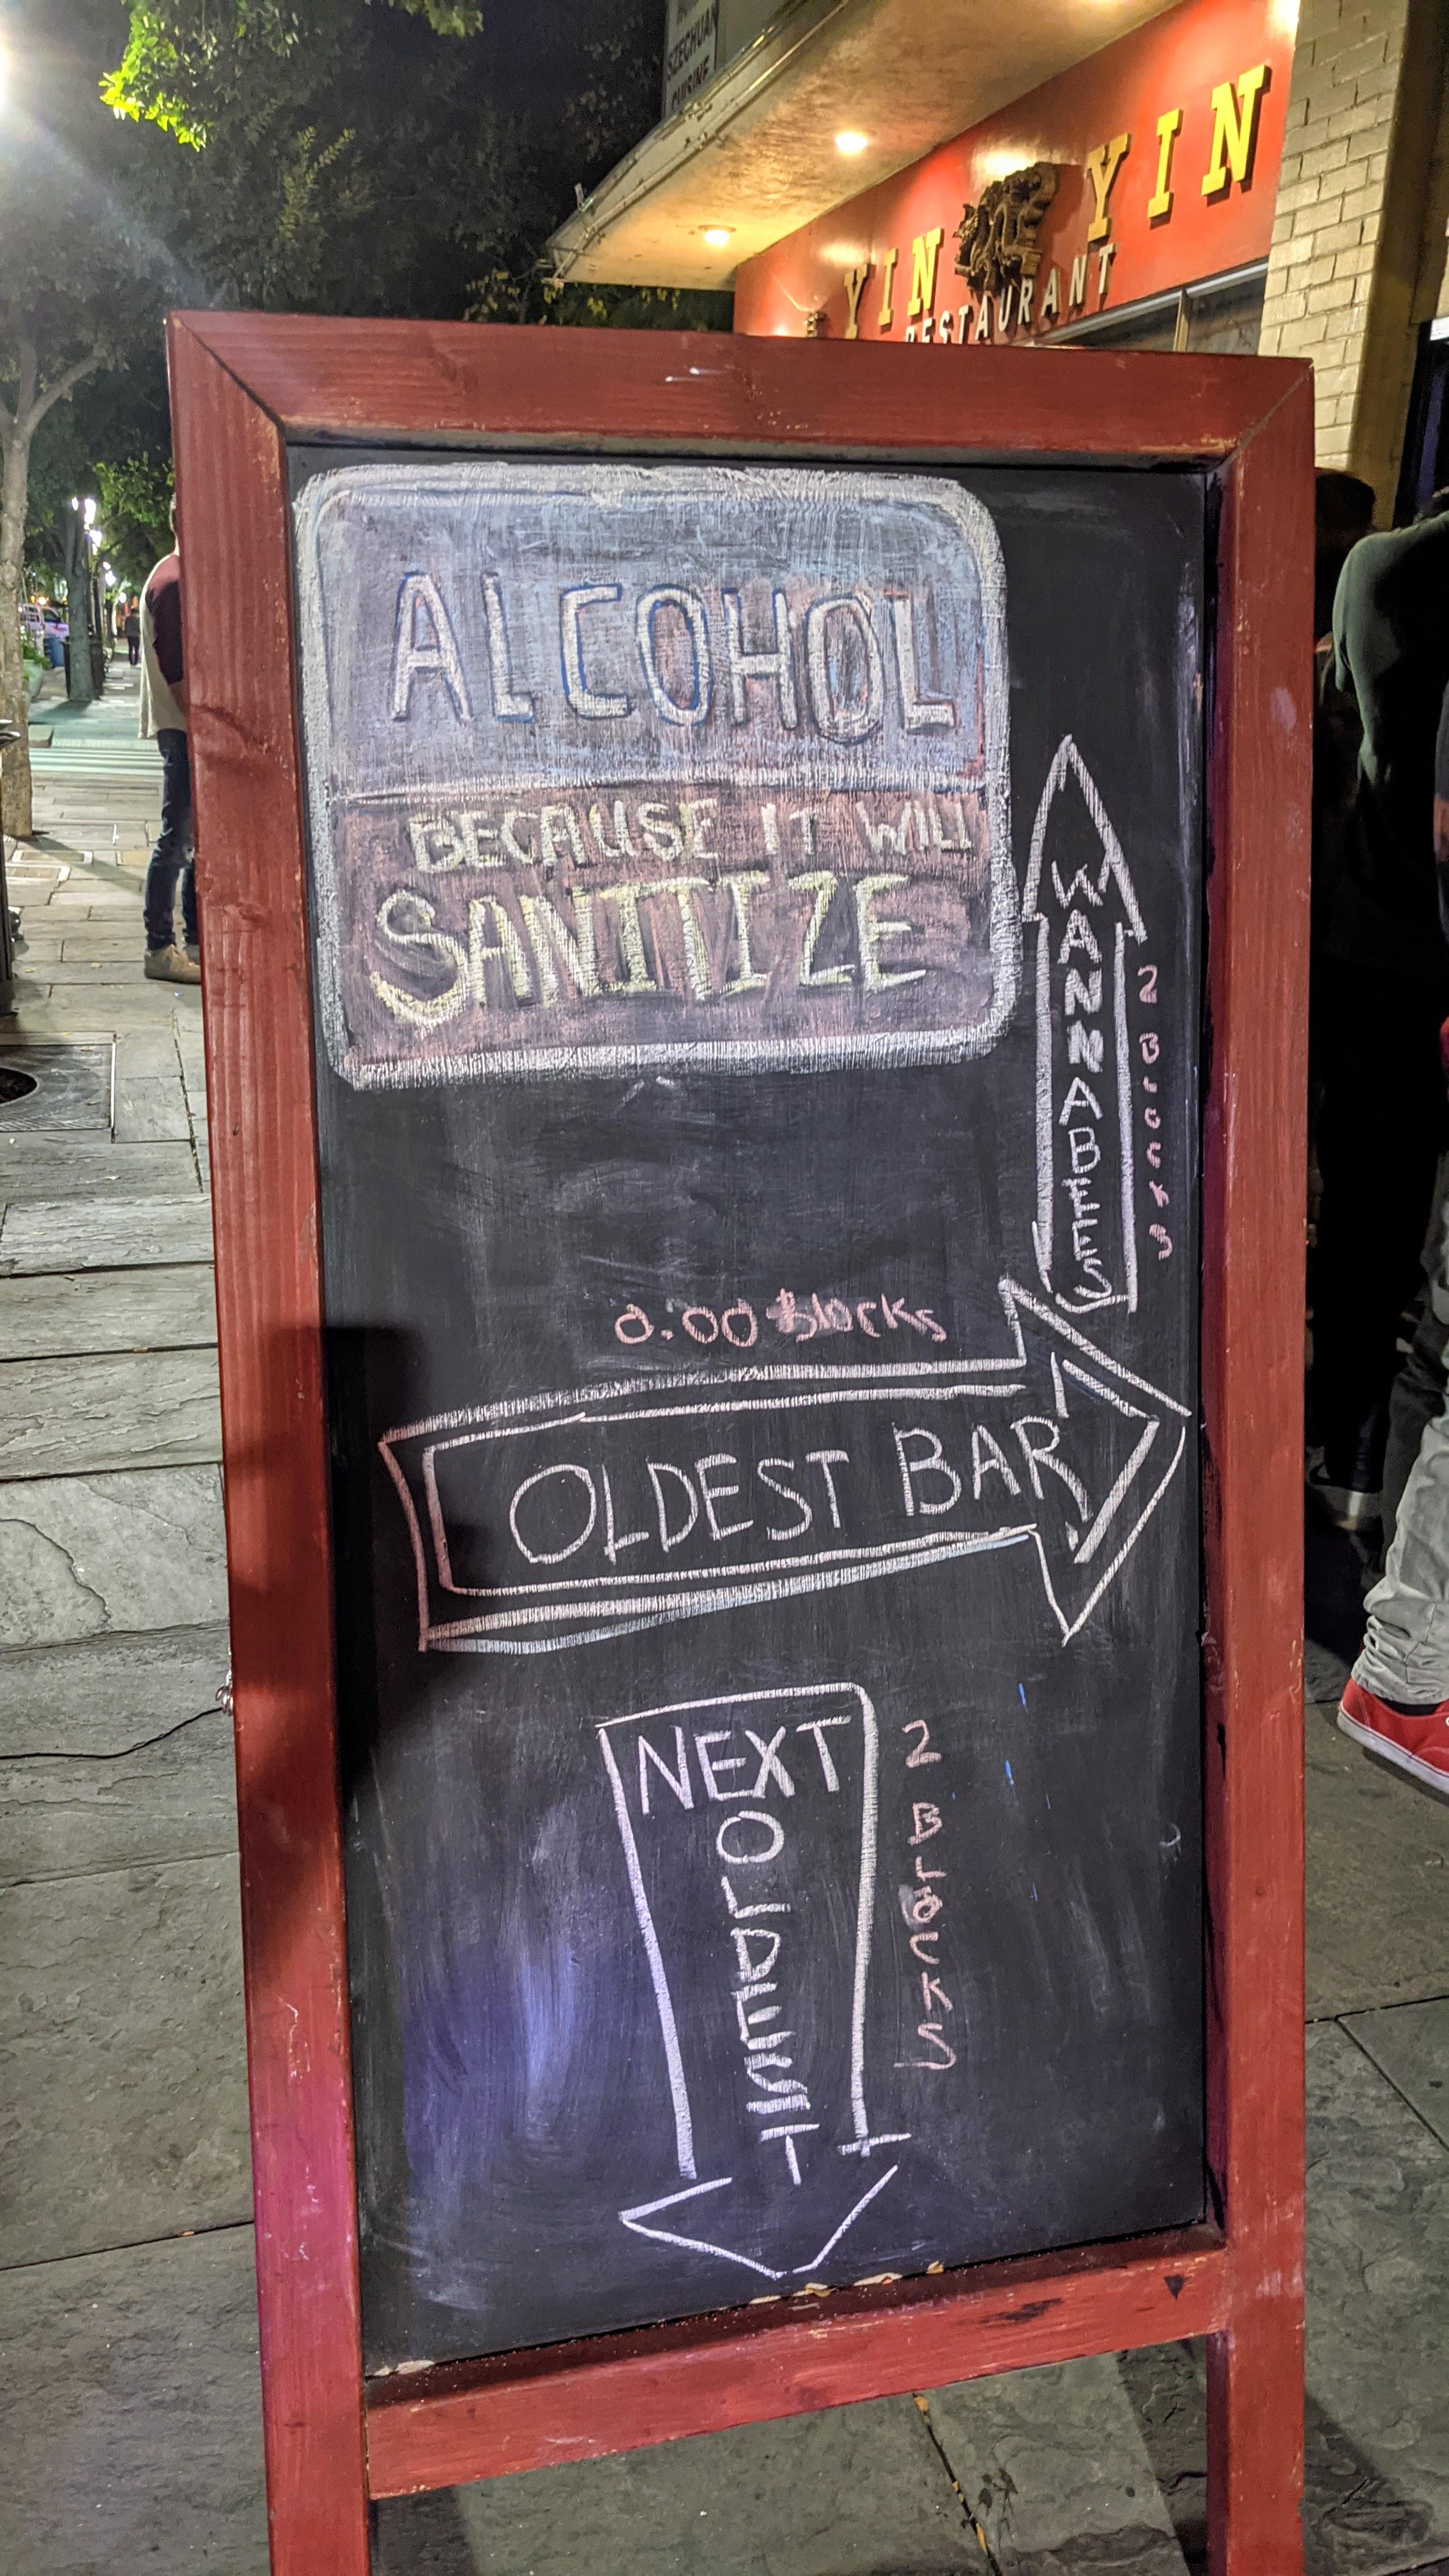 SZECHUAN
CUISINE
YIN YIN
RESTAURANT
ALCOHOL
BECAUSE IT WILL
SANITIZE
WANNABEES
2 BLOCKS
0.00 Blocks
OLDEST BAR
NEXT
OLDEST
2 BLOCKS